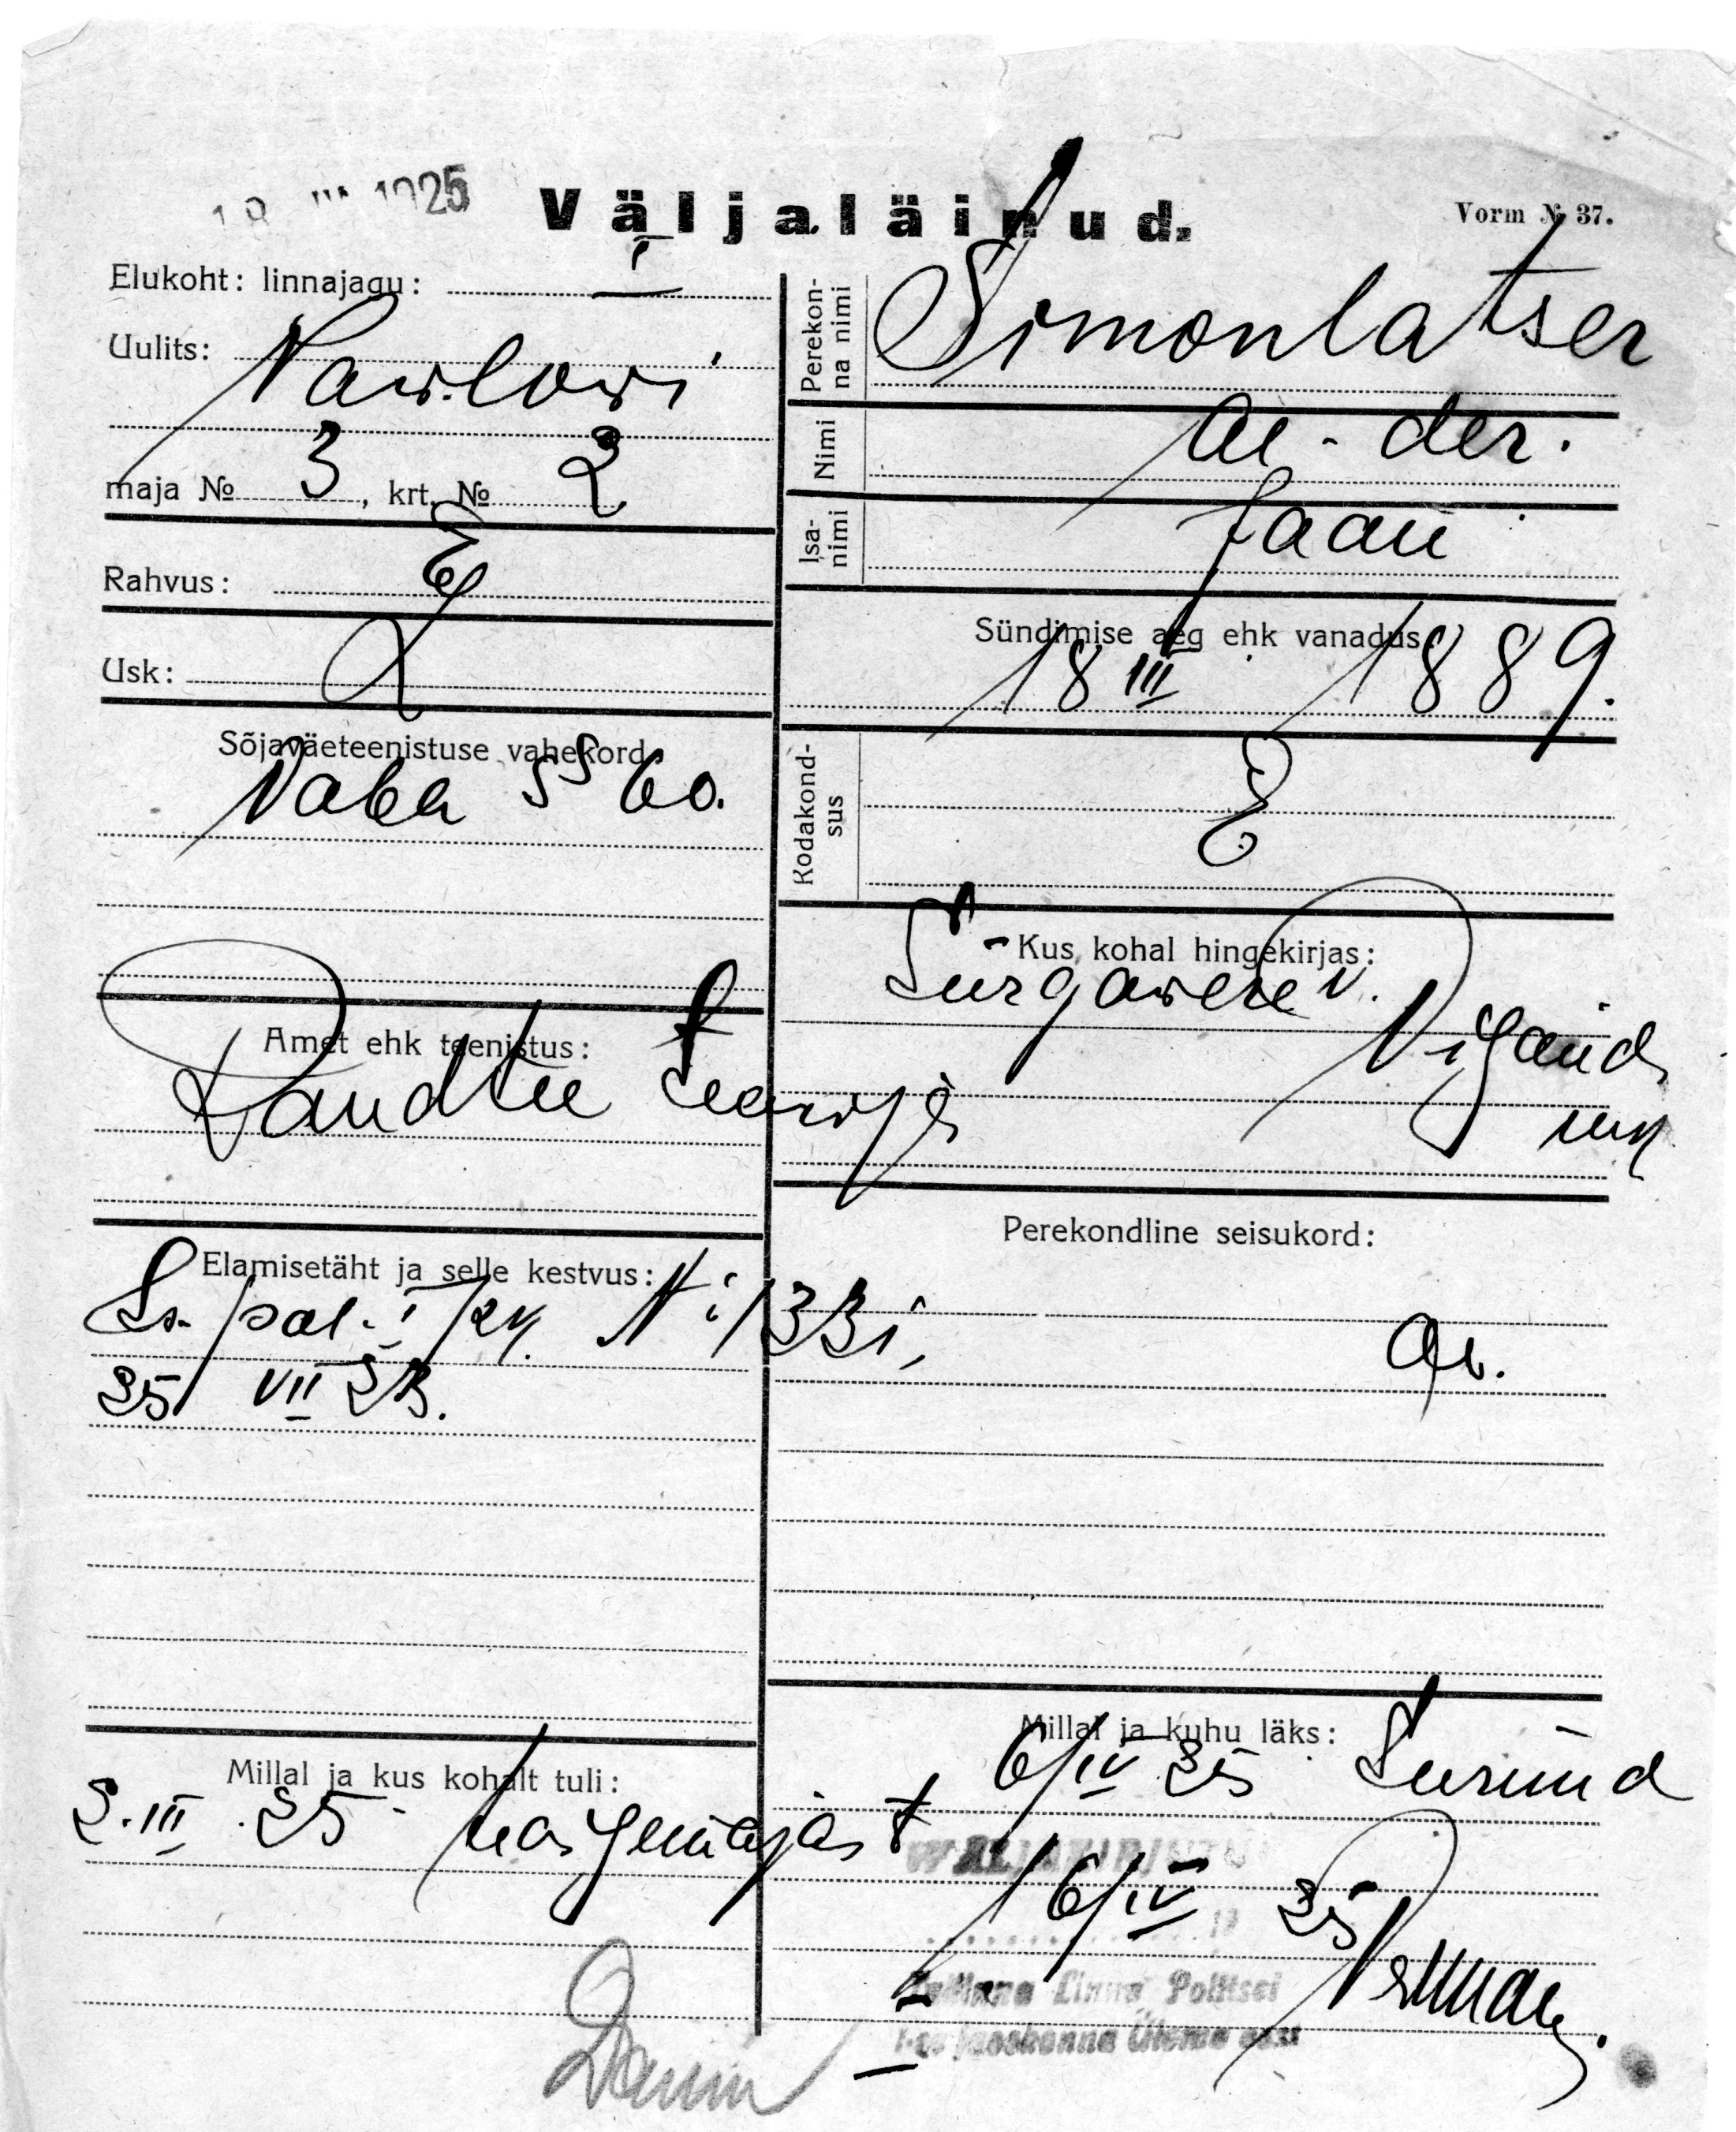 1925
Väljaläinud.
Vorm № 37.
Elukoht: linnajagu: I
Uulits: Pawlowi
maja № 3, krt. № 2
Rahvus: E
Usk: L
Sõjaväeteenistuse vahekord:
Vaba § 60.
Amet ehk teenistus:
Raudtee teenija
Elamisetäht ja selle kestvus:
pol. I /24. № 1331,
25 VII 23.
Millal ja kus kohalt tuli:
2.III.25
Perekonna nimi
Simonlatser
Nimi
Al-der.
Isanimi
Jaan
Sündimise aeg ehk vanadus
18 III 1889.
Kodakondsus
E
Kus kohal hingekirjas:
Türgawere v.
Wigaud
mk
Perekondline seisukord:
Ab.
Millal ja kuhu läks:
6/IV 25
16/IV 25
Tallinna Linna Politsei
I-se jaoskonna Ülema abi